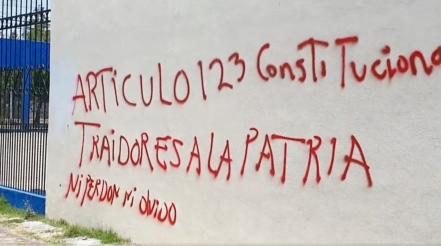 ARTICULO 123 ConsTiTuciona
TRAIDORES A LA PATRIA
Ni PERDON Ni OLViDO